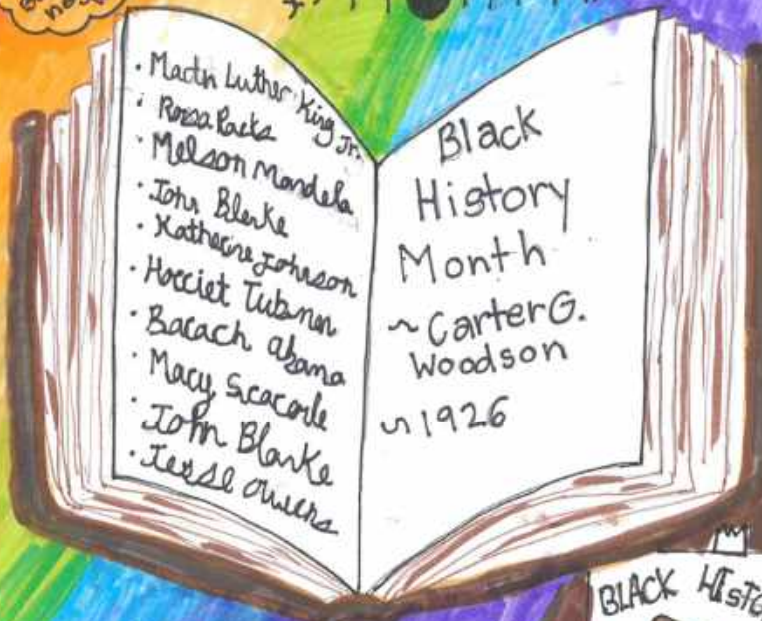 Martin Luther King Jr.
Rosa Parks
Nelson Mandela
John Blanke
Katherine Johnson
Harriet Tubman
Barach Obama
Mary Seacole
John Blanke
Jesse Owens
Black
History
Month
~ Carter G.
Woodson
~ 1926
BLACK HISTO